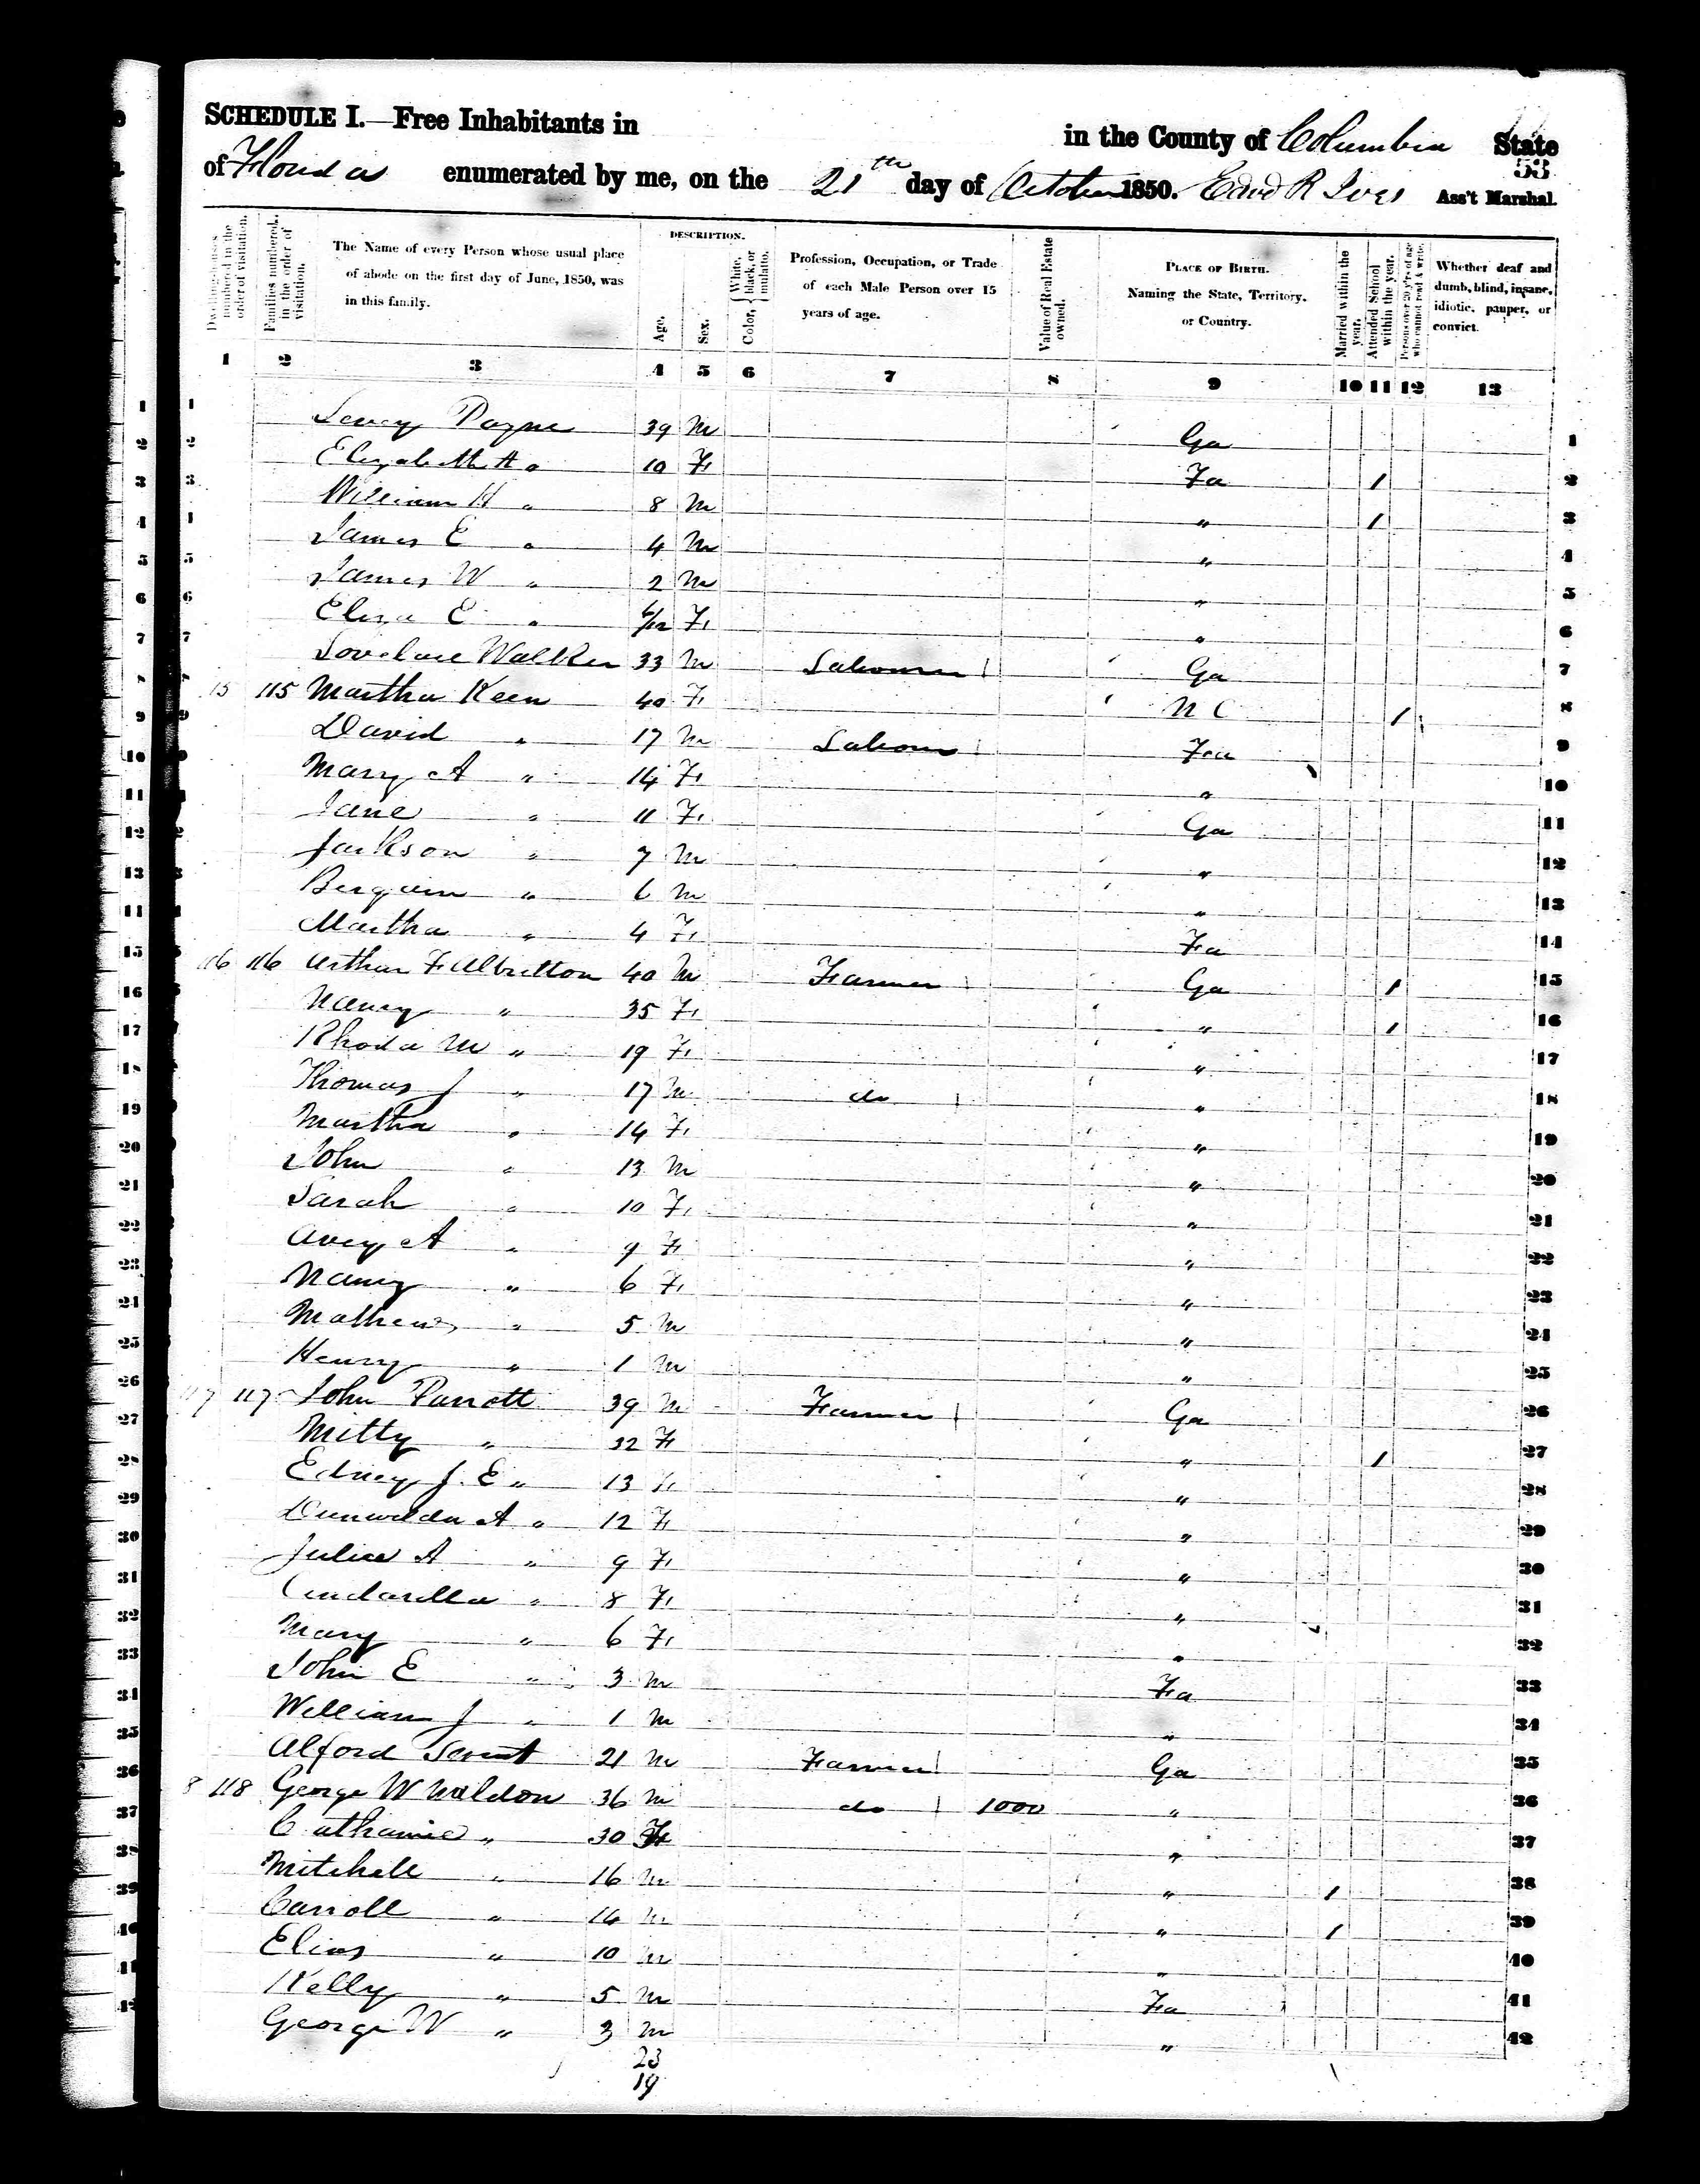 SCHEDULE I.—Free Inhabitants in in the County of Columbia State
of Florida enumerated by me, on the 21th day of October 1850. Edwd R Ives Ass't Marshal.
53
Dwelling-houses numbered in the order of visitation.
Families numbered in the order of visitation.
The Name of every Person whose usual place of abode on the first day of June, 1850, was in this family.
DESCRIPTION.
Age.
Sex.
Color, { White, black, or mulatto.
Profession, Occupation, or Trade of each Male Person over 15 years of age.
Value of Real Estate owned.
PLACE OF BIRTH. Naming the State, Territory, or Country.
Married within the year.
Attended School within the year.
Persons over 20 y'rs of age who cannot read & write.
Whether deaf and dumb, blind, insane, idiotic, pauper, or convict.
1 2 3 4 5 6 7 8 9 10 11 12 13
1 Payne 39 M Ga 1
2 Elizabeth A " 10 F Fa 1 2
3 William H " 8 M " 1 3
4 James E " 4 M " 4
5 James W " 2 M " 5
6 Eliza E " 6/12 F " 6
7 Lovelace Walker 33 M Labourer Ga 7
8 15 115 Martha Keen 40 F N C 1 8
9 David " 17 M Labour Fa 9
10 Mary A " 14 F " 10
11 Jane " 11 F Ga 11
12 Jackson " 7 M " 12
13 " 6 M " 13
14 Martha " 4 F Fa 14
15 116 116 Arthur F Albritton 40 M Farmer Ga 1 15
16 Nancy " 35 F " 1 16
17 Rhoda M " 19 F " 17
18 Thomas J " 17 M do " 18
19 Martha " 14 F " 19
20 John " 13 M " 20
21 Sarah " 10 F " 21
22 Avey A " 9 F " 22
23 Nancy " 6 F " 23
24 Mathew " 5 M " 24
25 Henry " 1 M " 25
26 117 117 John Parrott 39 M Farmer Ga 26
27 Mitty " 32 F " 1 27
28 Edney J. E " 13 F " 28
29 A " 12 F " 29
30 Julia A " 9 F " 30
31 Cindarella " 8 F " 31
32 Mary " 6 F " 32
33 John E " 3 M Fa 33
34 William J " 1 M " 34
35 Alford 21 M Farmer Ga 35
36 8 118 George W Waldon 36 M do 1000 " 36
37 Catharine " 30 F " 37
38 Mitchell " 16 M " 1 38
39 Carroll " 14 M " 1 39
40 Elias " 10 M " 40
41 Kelly " 5 M Fa 41
42 George W " 3 M " 42
23
19